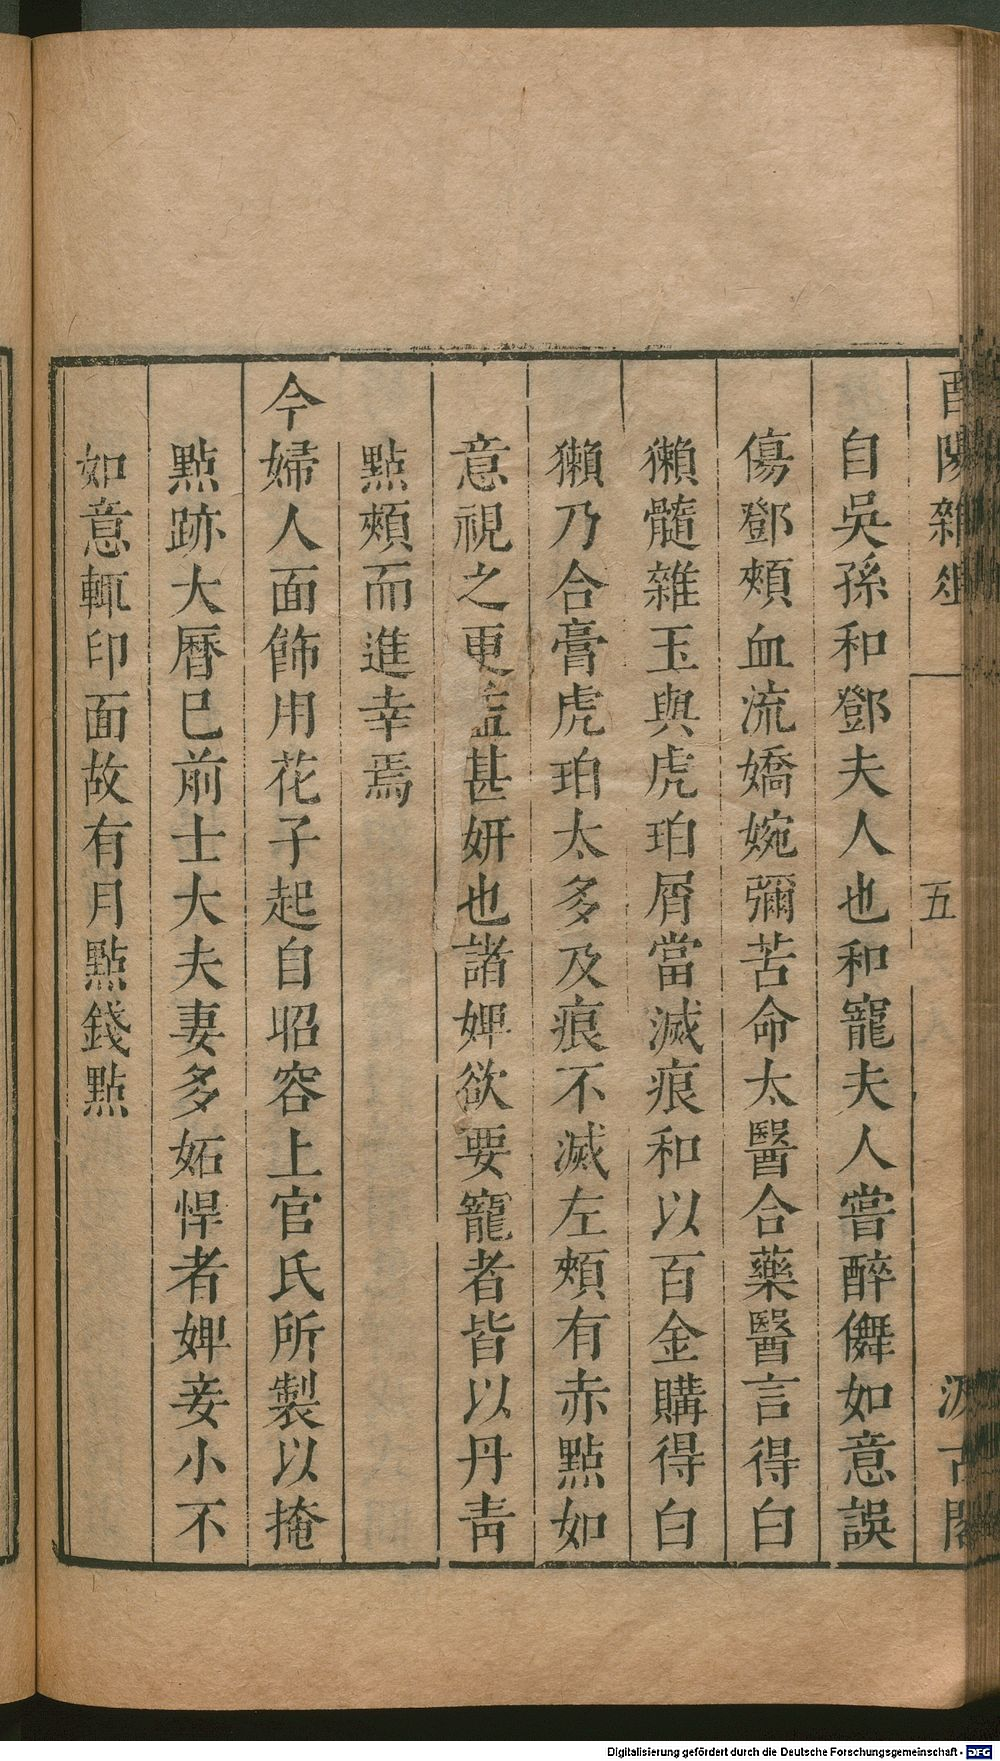 酉陽雜俎
五
汲古閣
自吳孫和鄧夫人也和寵夫人嘗醉儛如意誤
傷鄧頰血流嬌婉彌苦命太醫合藥醫言得白
獺髓雜玉與虎珀屑當滅痕和以百金購得白
獺乃合膏虎珀太多及痕不滅左頰有赤點如
意視之更益甚妍也諸婢欲要寵者皆以丹青
點頰而進幸焉
今婦人面飾用花子起自昭容上官氏所製以掩
點跡大曆已前士大夫妻多妬悍者婢妾小不
如意輒印面故有月點錢點
Digitalisierung gefördert durch die Deutsche Forschungsgemeinschaft - DFG